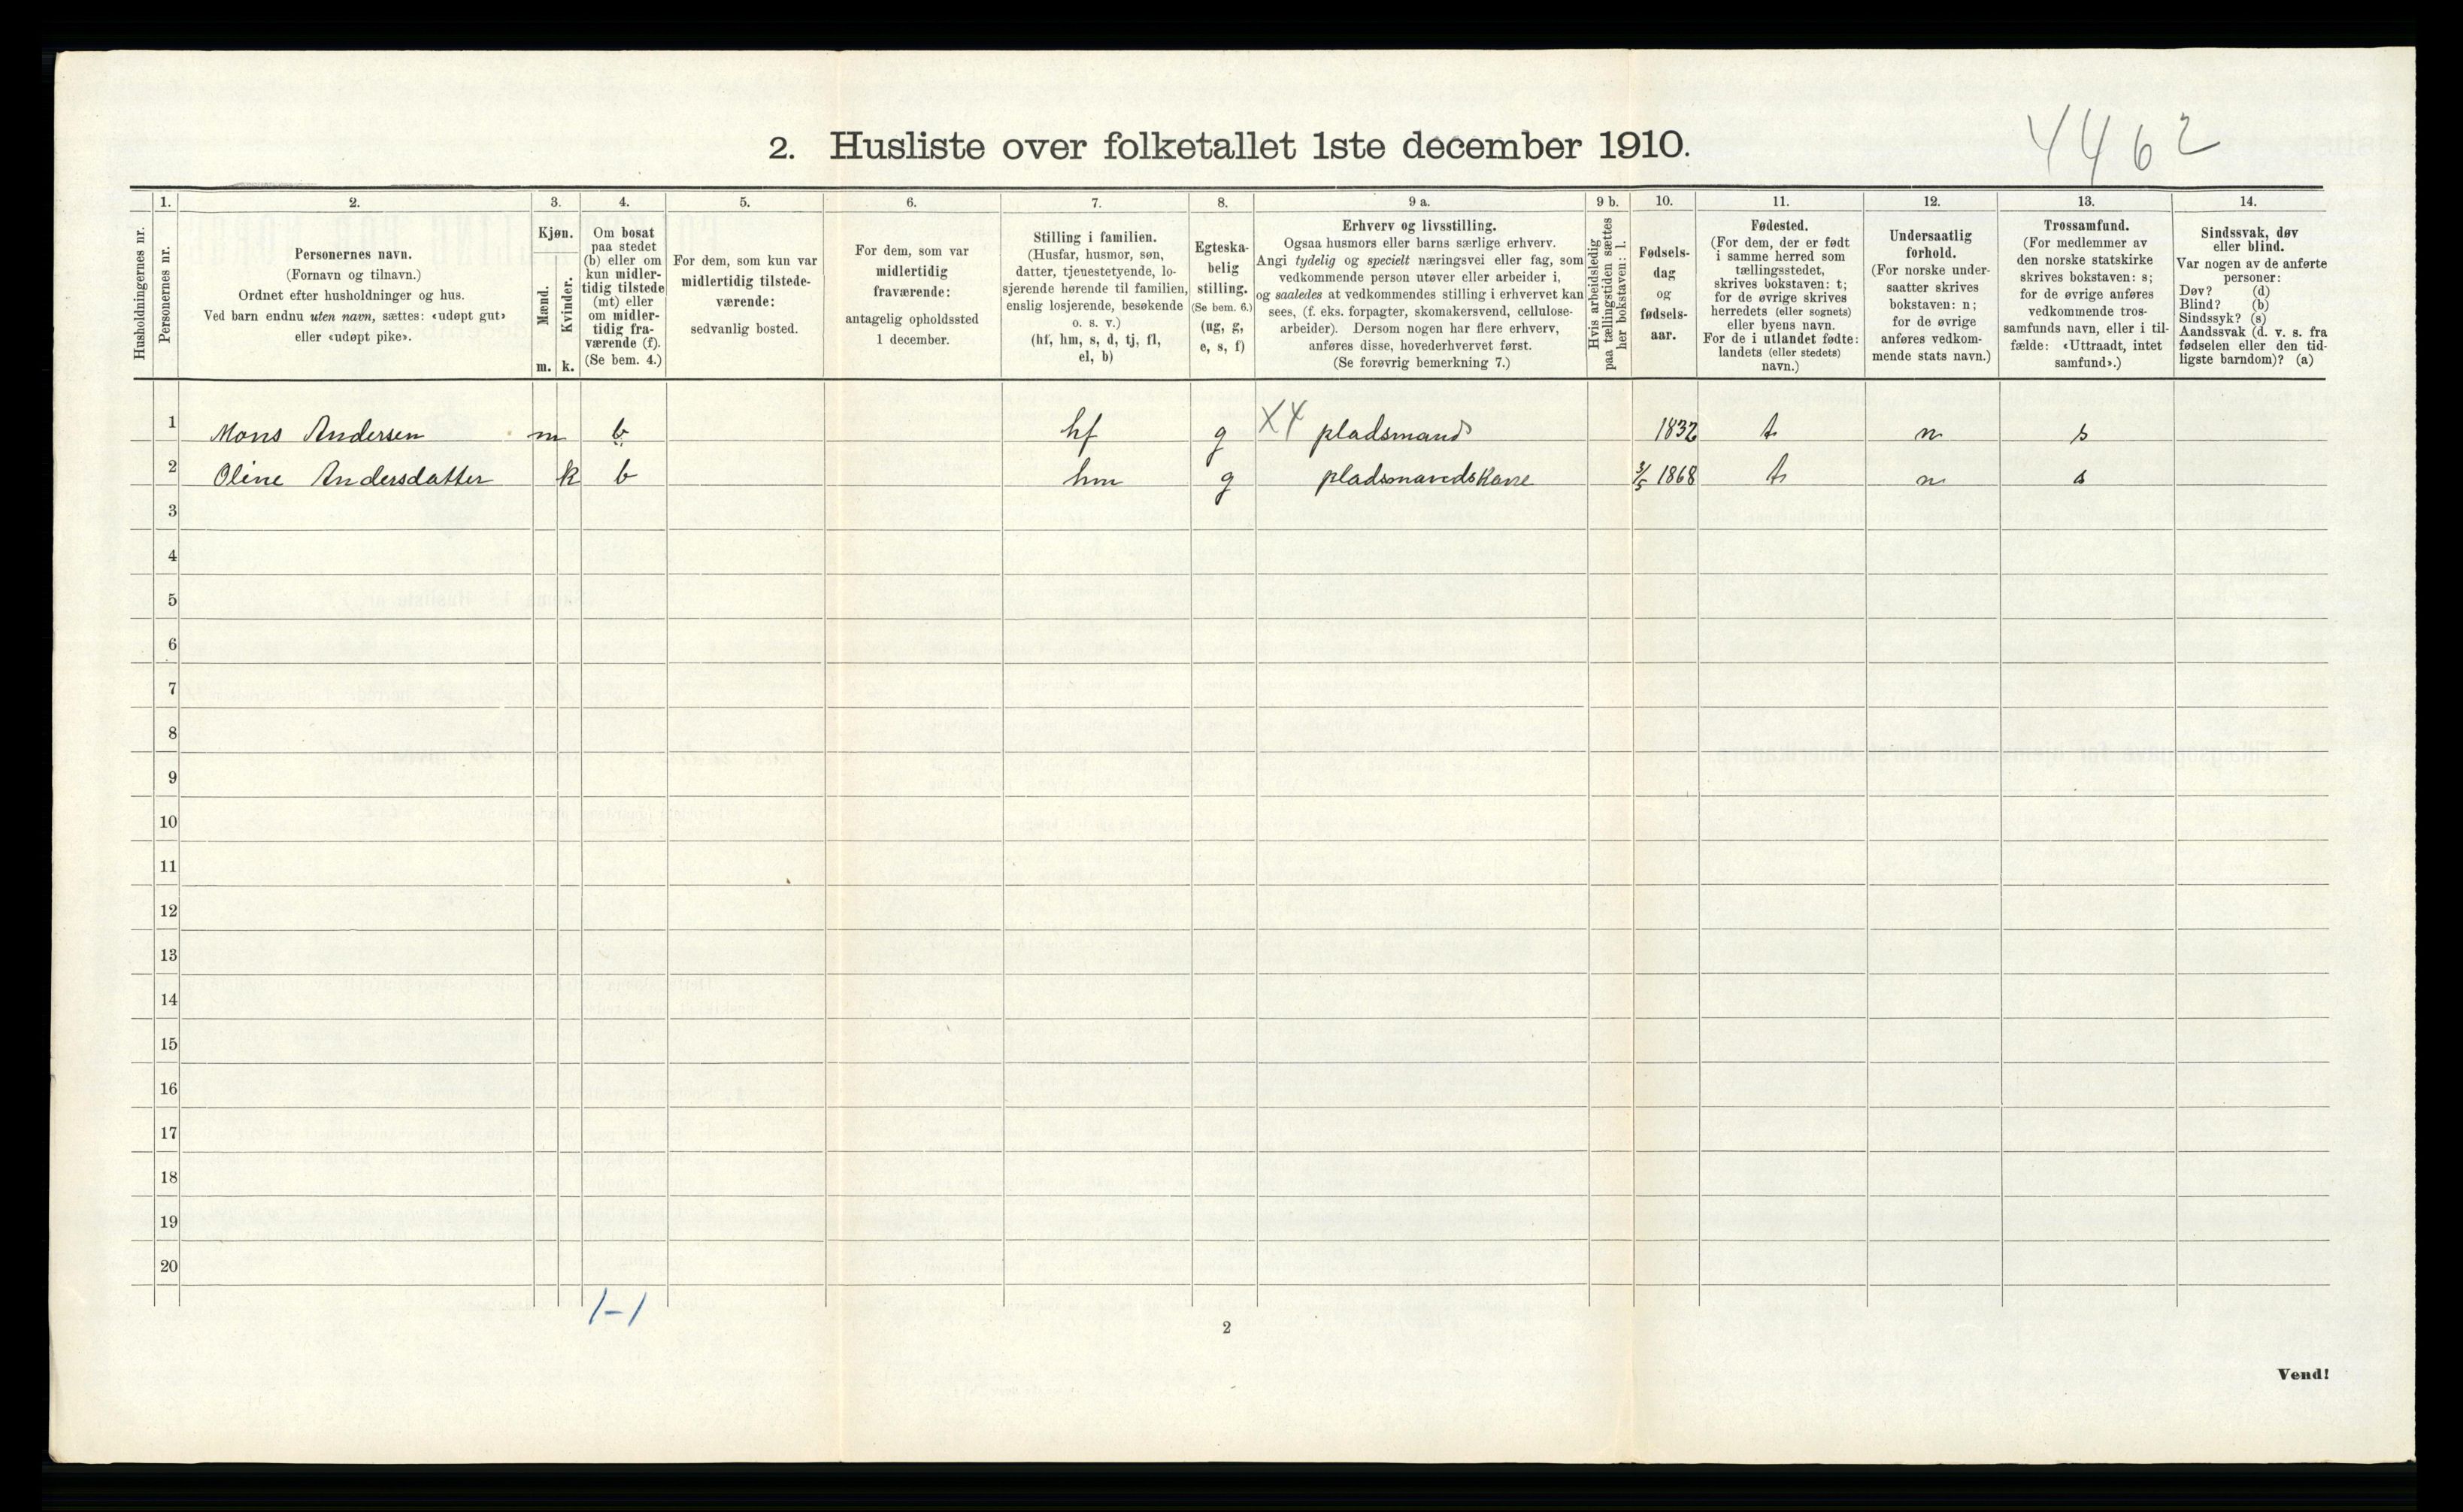 2. Husliste over folketallet 1ste december 1910.
4462
Husholdningernes nr.
1.
Personernes nr.
2.
Personernes navn.
(Fornavn og tilnavn.)
Ordnet efter husholdninger og hus.
Ved barn endnu uten navn, sættes: «udøpt gut»
eller «udøpt pike».
3.
Kjøn.
Mænd.
Kvinder.
m. k.
4.
Om bosat
paa stedet
(b) eller om
kun midler-
tidig tilstede
(mt) eller
om midler-
tidig fra-
værende (f).
(Se bem. 4.)
5.
For dem, som kun var
midlertidig tilstede-
værende:
sedvanlig bosted.
6.
For dem, som var
midlertidig
fraværende:
antagelig opholdssted
1 december.
7.
Stilling i familien.
(Husfar, husmor, søn,
datter, tjenestetyende, lo-
sjerende hørende til familien,
enslig losjerende, besøkende
o. s. v.)
(hf, hm, s, d, tj, fl,
el, b)
8.
Egteska-
belig
stilling.
(Se bem. 6.)
(ug, g,
e, s, f)
9 a.
Erhverv og livsstilling.
Ogsaa husmors eller barns særlige erhverv.
Angi tydelig og specielt næringsvei eller fag, som
vedkommende person utøver eller arbeider i,
og saaledes at vedkommendes stilling i erhvervet kan
sees, (f. eks. forpagter, skomakersvend, cellulose-
arbeider). Dersom nogen har flere erhverv,
anføres disse, hovederhvervet først.
(Se forøvrig bemerkning 7.)
9 b.
Hvis arbeidsledig
paa tællingstiden sættes
her bokstaven: l.
10.
Fødsels-
dag
og
fødsels-
aar.
11.
Fødested.
(For dem, der er født
i samme herred som
tællingsstedet,
skrives bokstaven: t;
for de øvrige skrives
herredets (eller sognets)
eller byens navn.
For de i utlandet fødte:
landets (eller stedets)
navn.)
12.
Undersaatlig
forhold.
(For norske under-
saatter skrives
bokstaven: n;
for de øvrige
anføres vedkom-
mende stats navn.)
13.
Trossamfund.
(For medlemmer av
den norske statskirke
skrives bokstaven: s;
for de øvrige anføres
vedkommende tros-
samfunds navn, eller i til-
fælde: «Uttraadt, intet
samfund».)
14.
Sindssvak, døv
eller blind.
Var nogen av de anførte
personer:
Døv? (d)
Blind? (b)
Sindssyk? (s)
Aandssvak (d. v. s. fra
fødselen eller den tid-
ligste barndom)? (a)
1 Mons Andersen m b hf g X4 pladsmand 1832 t n s
2 Oline Andersdatter k b hm g pladsmandskone 3/5 1868 t n s
3
4
5
6
7
8
9
10
11
12
13
14
15
16
17
18
19
20
1-1
2
Vend!